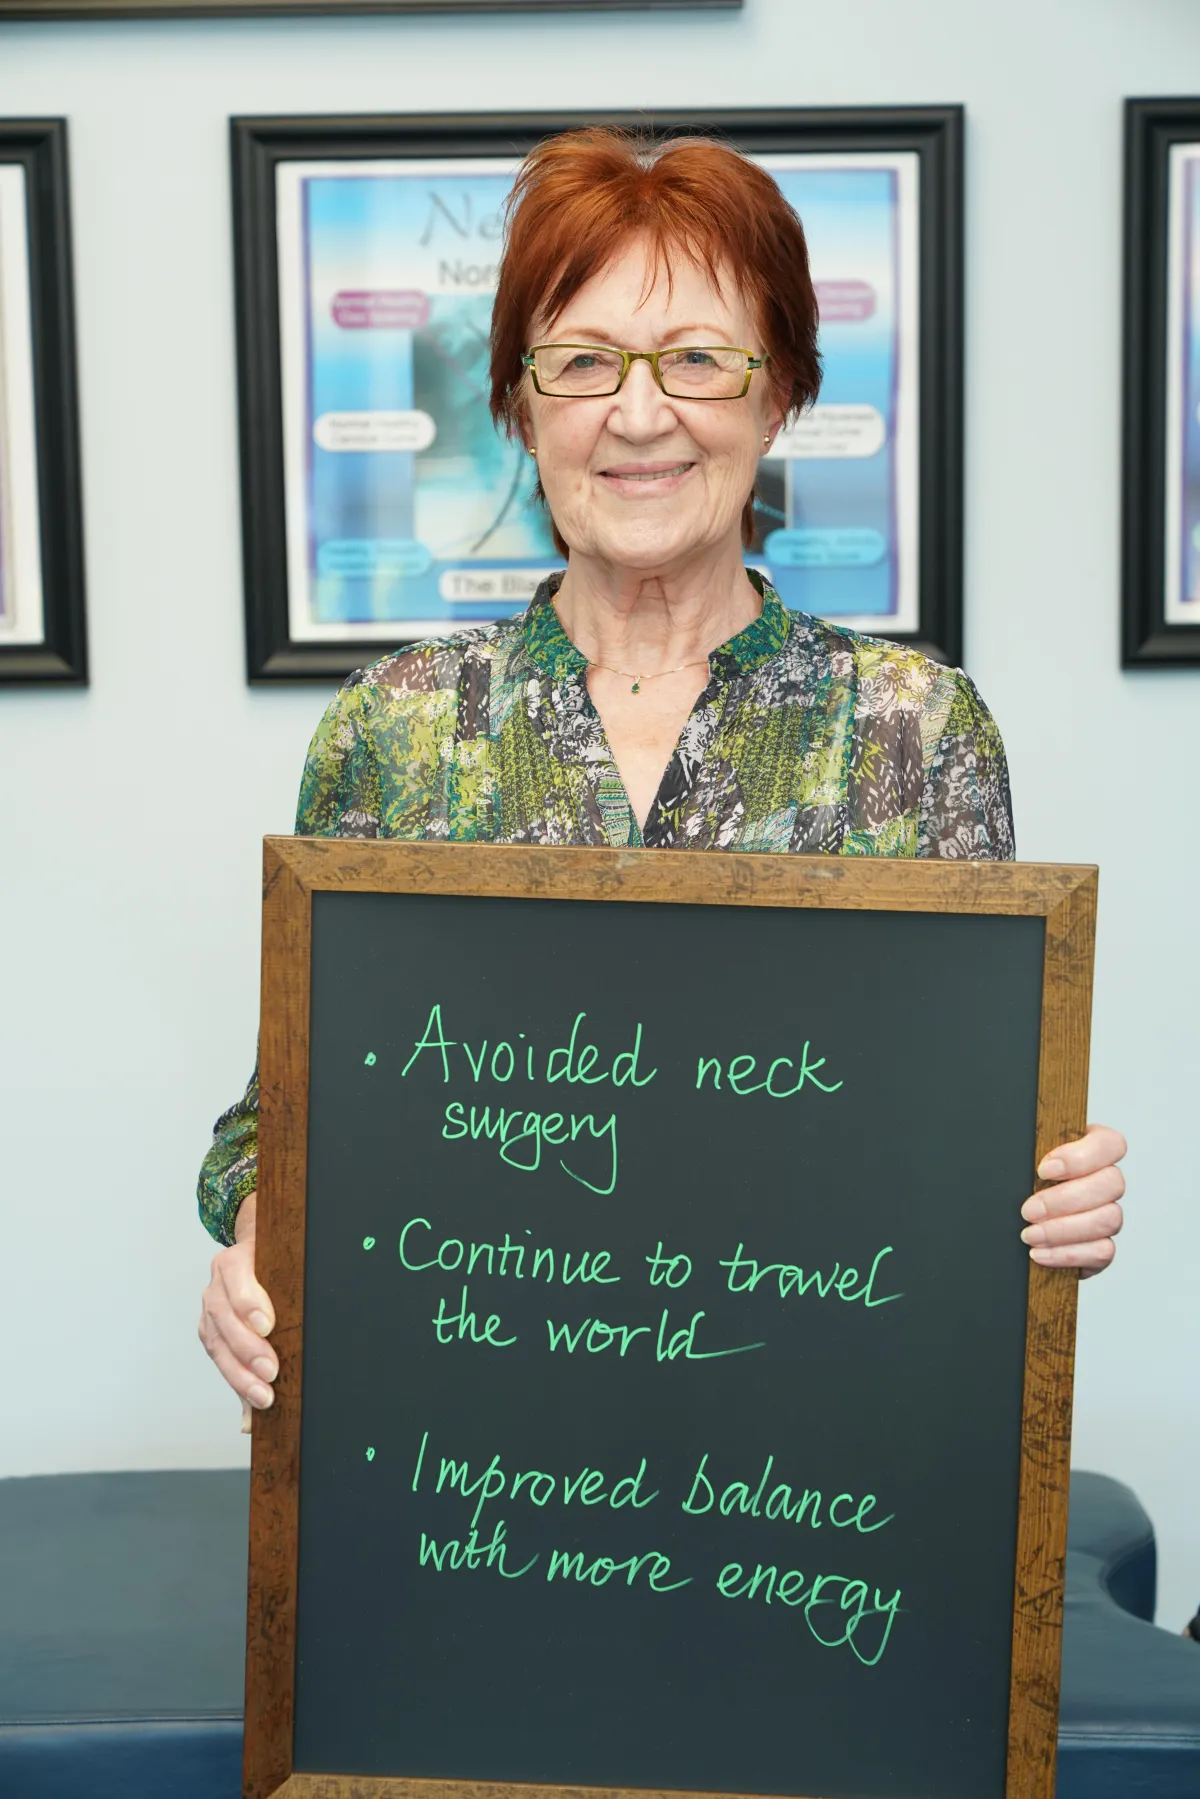 Ne
Nor
The Bla
• Avoided neck
surgery
• Continue to travel
the world
• Improved balance
with more energy